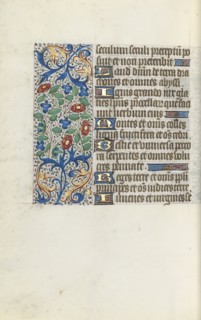 seculum seculi preceptum po
suit et non preteribit
Laudate dominum de terra dra
cones et omnes abyssi
Ignis grando nix gla
cies spiritus procellarum que faciunt
verbum eius
Montes et omnes colles
ligna fructifera et omnes cedri
Bestie et universa peco
ra serpentes et omnes volu
cres pennate
Reges terre et omnes populi
principes et omnes iudices terre
Iuvenes et virgines se